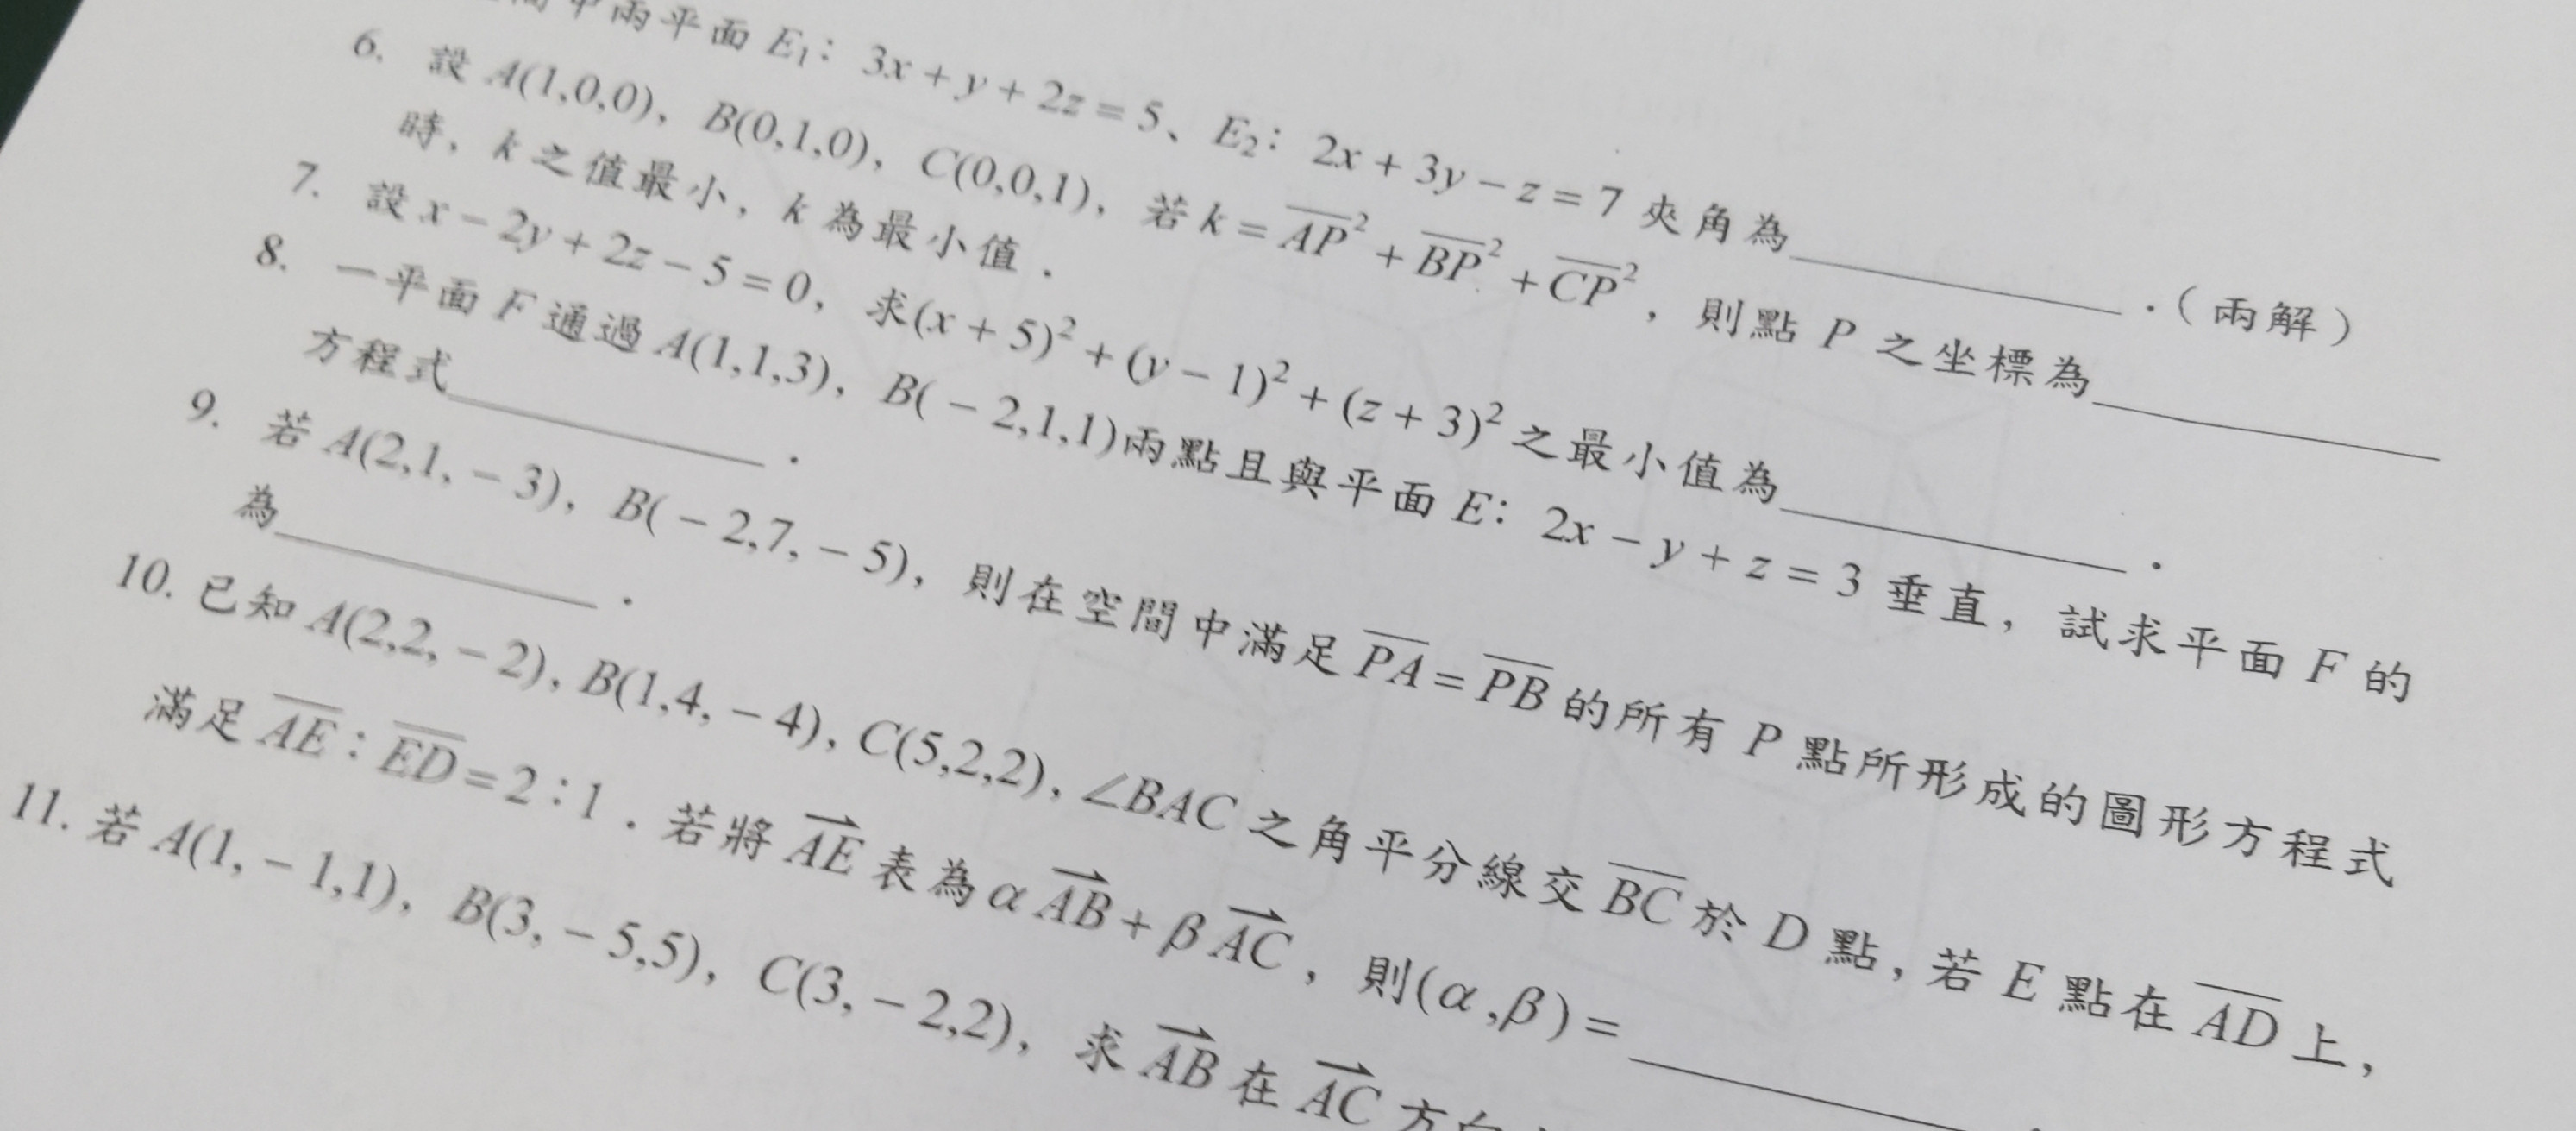 間中兩平面 E₁：3x + y + 2z = 5、E₂：2x + 3y − z = 7 夾角為＿＿＿＿＿＿．（兩解）
6. 設 A(1,0,0)，B(0,1,0)，C(0,0,1)，若 k = \overline{AP}² + \overline{BP}² + \overline{CP}²，則點 P 之坐標為＿＿＿＿＿＿
時，k 之值最小，k 為最小值．
7. 設 x − 2y + 2z − 5 = 0，求(x + 5)² + (y − 1)² + (z + 3)² 之最小值為＿＿＿＿＿＿．
8. 一平面 F 通過 A(1,1,3)，B( − 2,1,1)兩點且與平面 E：2x − y + z = 3 垂直，試求平面 F 的
方程式＿＿＿＿＿＿．
9. 若 A(2,1, − 3)，B( − 2,7, − 5)，則在空間中滿足 \overline{PA} = \overline{PB} 的所有 P 點所形成的圖形方程式
為＿＿＿＿＿＿．
10. 已知 A(2,2, − 2), B(1,4, − 4), C(5,2,2), ∠BAC 之角平分線交 \overline{BC} 於 D 點, 若 E 點在 \overline{AD} 上，
滿足 \overline{AE}：\overline{ED} = 2：1．若將 \overrightarrow{AE} 表為 α\overrightarrow{AB} + β\overrightarrow{AC}，則(α ,β ) = ＿＿＿＿＿＿．
11. 若 A(1, − 1,1)，B(3, − 5,5)，C(3, − 2,2)，求 \overrightarrow{AB} 在 \overrightarrow{AC} 方向